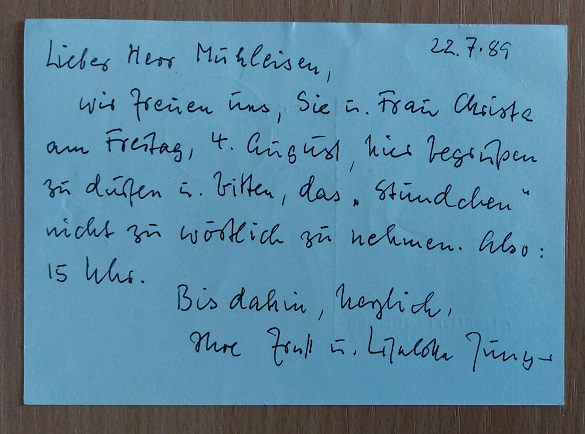 22.7.89
Lieber Herr Mühleisen,
wir freuen uns, Sie u. Frau Christa
am Freitag, 4. August, hier begrüßen
zu dürfen u. bitten, das „Stündchen“
nicht zu wörtlich zu nehmen. Also:
15 Uhr.
Bis dahin, herzlich,
Ihre Ernst u. Liselotte Jünger